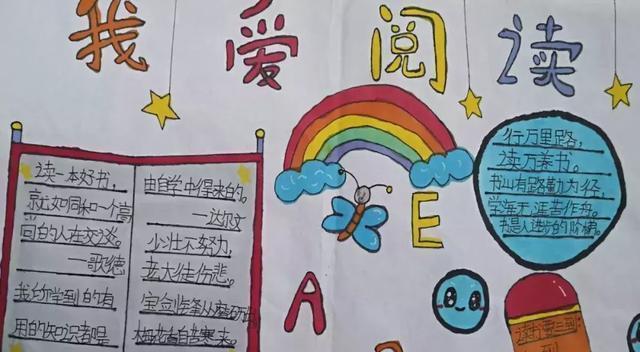 我爱阅读
读一本好书，
就如同和一个高
尚的人在交谈。
—歌德
我们学到的有
用的知识者是
由自学中得来的。
—达尔文
少壮不努力，
老大徒伤悲。
宝剑锋从磨砺出
梅花香自苦寒来。
行万里路，
读万卷书。
书山有路勤为径，
学海无涯苦作舟。
书是人进步的阶梯。
E
A
读书三到: